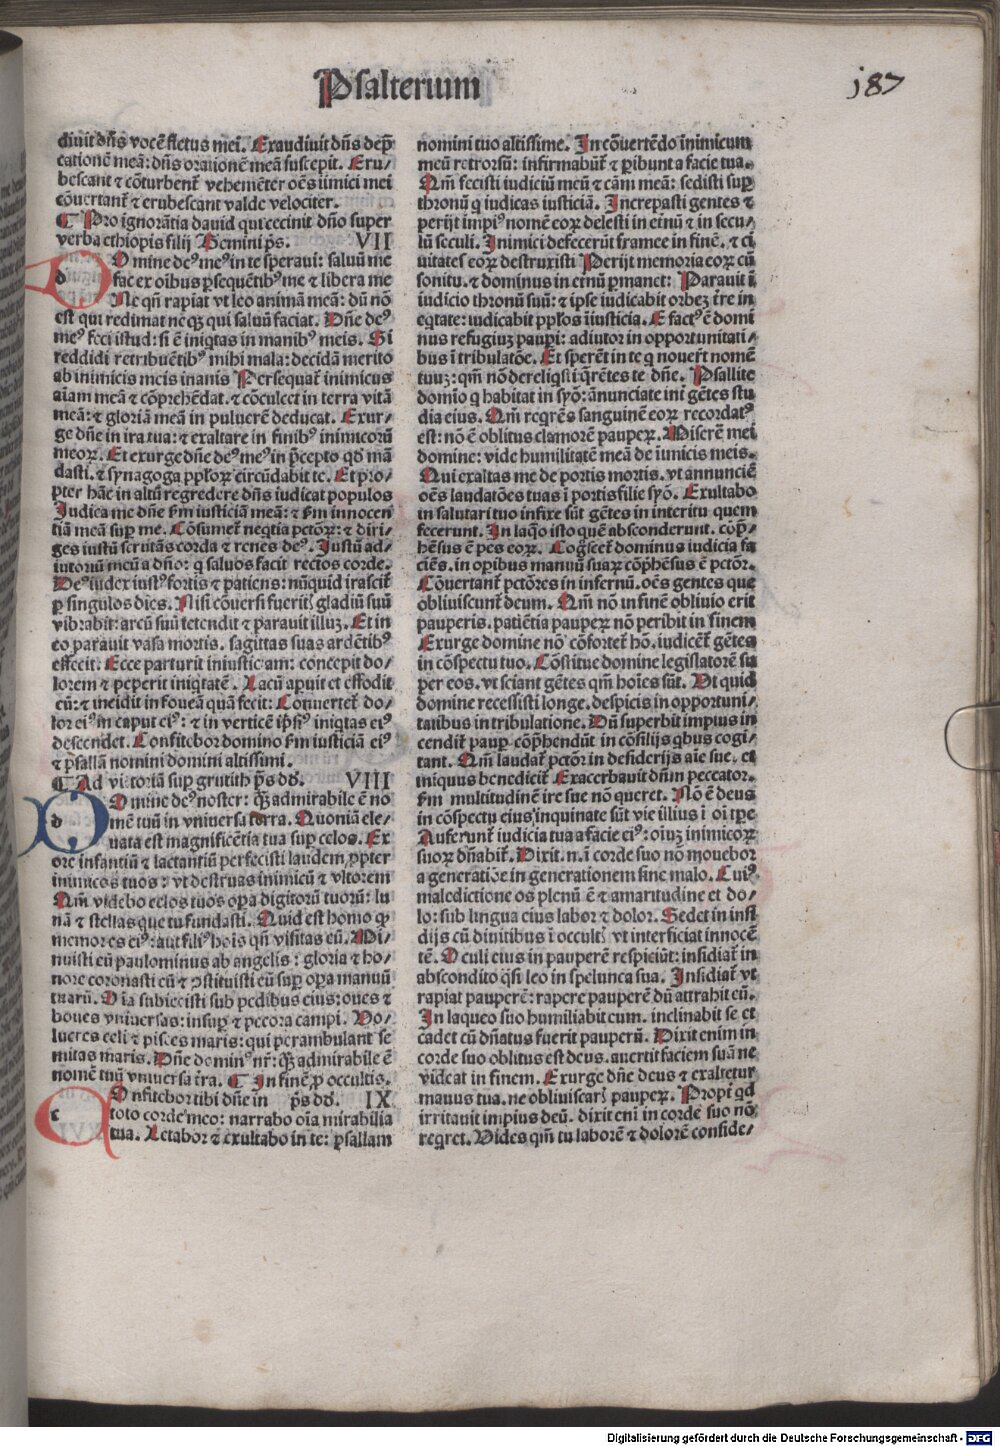 Psalterium
187
diuit dñs vocē fletus mei. Exaudiuit dñs dep̄
cationē meā: dñs orationē meā suscepit. Eru/
bescant ⁊ cōturbent᷑ vehemēter oēs inimici mei
cōuertant᷑ ⁊ erubescant valde velociter.
¶ Pro ignorātia dauid qui cecinit dño super
verba ethiopis filij Gemini p̄s. VII
d
Omine deꝰ meꝰ in te speraui: saluū me
fac ex oībus ꝑsequētibꝰ me ⁊ libera me
Ne qñ rapiat vt leo animā meā: dū nō
est qui redimat neqꝫ qui saluū faciat. Dñe deꝰ
meꝰ si feci istud: si ē iniqͥtas in manibꝰ meis. Si
reddidi retribuētibꝰ mihi mala: decidā merito
ab inimicis meis inanis Persequat᷑ inimicus
aīam meā ⁊ cōprehēdat. ⁊ cōculcet in terra vitā
meā: ⁊ gloriā meā in puluerē deducat. Exur/
ge dñe in ira tua: ⁊ exaltare in finibꝰ inimicorū
meoꝝ. Et exurge dñe deꝰ meꝰ in p̄cepto qd̄ mā
dasti. ⁊ synagoga ppl̄oꝝ circūdabit te. Et pro/
pter hāc in altū regredere dñs iudicat populos
Iudica me dñe ẜm iusticiā meā: ⁊ ẜm innocen
tiā meā suꝑ me. Cōsumet᷑ neq̄tia pctōꝝ: ⁊ diri/
ges iustū scrutās corda ⁊ renes deꝰ. Iustū ad/
iutoriū meū a dño: q̇ saluos facit rectos corde.
Deꝰ iudex iustꝰ fortis ⁊ patiens: nūquid irascit᷑
ꝑ singulos dies. Nisi cōuersi fueritꝭ gladiū suū
vibrabit: arcū suū tetendit ⁊ parauit illuꝫ. Et in
eo parauit vasa mortis. sagittas suas ardētibꝰ
effecit. Ecce parturit iniusticiam: concepit do/
lorem ⁊ peperit iniqͥtatē. Lacū aꝑuit et effodit
eū: ⁊ incidit in foueā quā fecit: Conuertet᷑ do/
lor eiꝰ in caput eiꝰ: ⁊ in verticē ip̄siꝰ iniqͥtas eiꝰ
descendet. Confitebor domino ẜm iusticiā eiꝰ
⁊ p̄sallā nomini domini altissimi.
¶ Ad victoriā suꝑ gytuth p̄s dd̄. VIII
d
Omine deꝰ noster: qͣꝫ admirabile ē no
mē tuū in vniuersa terra. Quoniā ele/
uata est magnificētia tua suꝑ celos. Ex
ore infantiū ⁊ lactantiū perfecisti laudem ꝓpter
inimicos tuos: vt destruas inimicū ⁊ vltorem
Qm̄ videbo celos tuos oꝑa digitorū tuorū: lu
nā ⁊ stellas que tu fundasti. Quid est homo qꝙ
memores eiꝰ: aut filiꝰ hoīs qm̄ visitas eū. Mi/
nuisti eū paulominus ab angelis: gloria ⁊ ho/
nore coronasti eū ⁊ ꝯstituisti eū suꝑ oꝑa manuū
tuarū. Oīa subiecisti sub pedibus eius: oues ⁊
boues vniuersas: insuꝑ ⁊ pecora campi. Vo/
lucres celi ⁊ pisces maris: qui perambulant se
mitas maris. Dñe dominꝰ nr̄: qͣꝫ admirabile ē
nomē tuū vniuersa t̄ra. ¶ In finē ꝓ occultis.
c
Onfitebor tibi dñe in p̄s dd̄. IX
toto corde meo: narrabo oīa mirabilia
tua. Letabor ⁊ exultabo in te: p̄sallam
nomini tuo altissime. In cōuertēdo inimicum
meū retrorsū: infirmabūt᷑ ⁊ ꝑibunt a facie tua.
Qm̄ fecisti iudiciū meū ⁊ cām meā: sedisti suꝑ
thronū q̇ iudicas iusticiā. Increpasti gentes ⁊
perijt impiꝰ nomē eoꝝ delesti in et̄nū ⁊ in secu/
lū seculi. Inimici defecerūt framee in finē. ⁊ ci
uitates eoꝝ destruxisti Perijt memoria eoꝝ cū
sonitu. ⁊ dominus in et̄nū ꝑmanet: Parauit ī
iudicio thronū suū: ⁊ ipse iudicabit orbeꝫ t̄re in
eqͥtate: iudicabit ppl̄os ī iusticia. E factꝰ ē domi
nus refugiuꝫ pauꝑi: adiutor in opportunitati/
bus ī tribulatōe. Et sperēt in te q̇ nouer̄t nomē
tuuꝫ: qm̄ nō dereliqͥsti q̄rētes te dñe. Psallite
domīo q̇ habitat in syō: ānunciate int̄ gētes stu
dia eius. Qm̄ reqͥrēs sanguinē eoꝝ recordatꝰ
est: nō ē oblitus clamorē pauperꝝ. Miserē mei
domine: vide humilitatē meā de inimicis meis.
Qui exaltas me de portis mortis. vt annunciē
oēs laudatōes tuas ī portis filie syō. Exultabo
in salutari tuo infixe sūt gētes in interitu quem
fecerunt. In laqͦ isto quē absconderunt. cōp̄/
hēsus ē pes eoꝝ. Cog̊scet᷑ dominus iudicia fa
ciēs. in oꝑibus manuū suaꝝ cōp̄hēsus ē pctōr.
Cōuertant᷑ pctōres in infernū. oēs gentes que
obliuiscunt᷑ deum. Qm̄ nō in finē obliuio erit
pauperis. patiētia paupeꝝ nō peribit in finem
Exurge domine nō cōfortet᷑ hō. iudicēt᷑ gētes
in cōspectu tuo. Cōstitue domine legislatorē su
per eos. vt sciant gētes qm̄ hoīes sūt. Vt quid
domine recessisti longe. despicis in opportuni/
tatibus in tribulatione. Dū superbit impius in
cendit᷑ pauꝑ. cōp̄hendūt᷑ in cōsilijs qͥbus cogi/
tant. Qm̄ laudat᷑ pctōr in desiderijs aīe sue. et
iniquus benedicit᷑. Exacerbauit dñm peccator.
ẜm multitudinē ire sue nō queret. Nō ē deus
in cōspectu eius inquinate sūt vie illius ī oī tꝑe
Auferunt᷑ iudicia tua a facie eiꝰ: oīuꝫ inimicoꝝ
suoꝝ dn̄abit᷑. Dixit. n. ī corde suo nō mouebor
a generatiōe in generationem sine malo. Cuiꝰ
maledictione os plenū ē ⁊ amaritudine et do/
lo: sub lingua eius labor ⁊ dolor. Sedet in insi
dijs cū diuitibus ī occultꝭ vt interficiat innocē
tē. Oculi eius in pauperē respiciūt: insidiat᷑ in
abscondito qͣsi leo in spelunca sua. Insidiat᷑ vt
rapiat pauperē: rapere pauperē dū attrahit eū.
In laqueo suo humiliabit eum. inclinabit se et
cadet cū dn̄atus fuerit pauperū. Dixit enim in
corde suo oblitus est deus. auertit faciem suā ne
videat in finem. Exurge dñe deus ⁊ exaltetur
manus tua. ne obliuiscarꝭ pauperꝝ. Propt᷑ qd̄
irritauit impius deū. dixit enī in corde suo nō
reqͥret. Vides qm̄ tu laborē ⁊ dolorē conside/
Digitalisierung gefördert durch die Deutsche Forschungsgemeinschaft - DFG